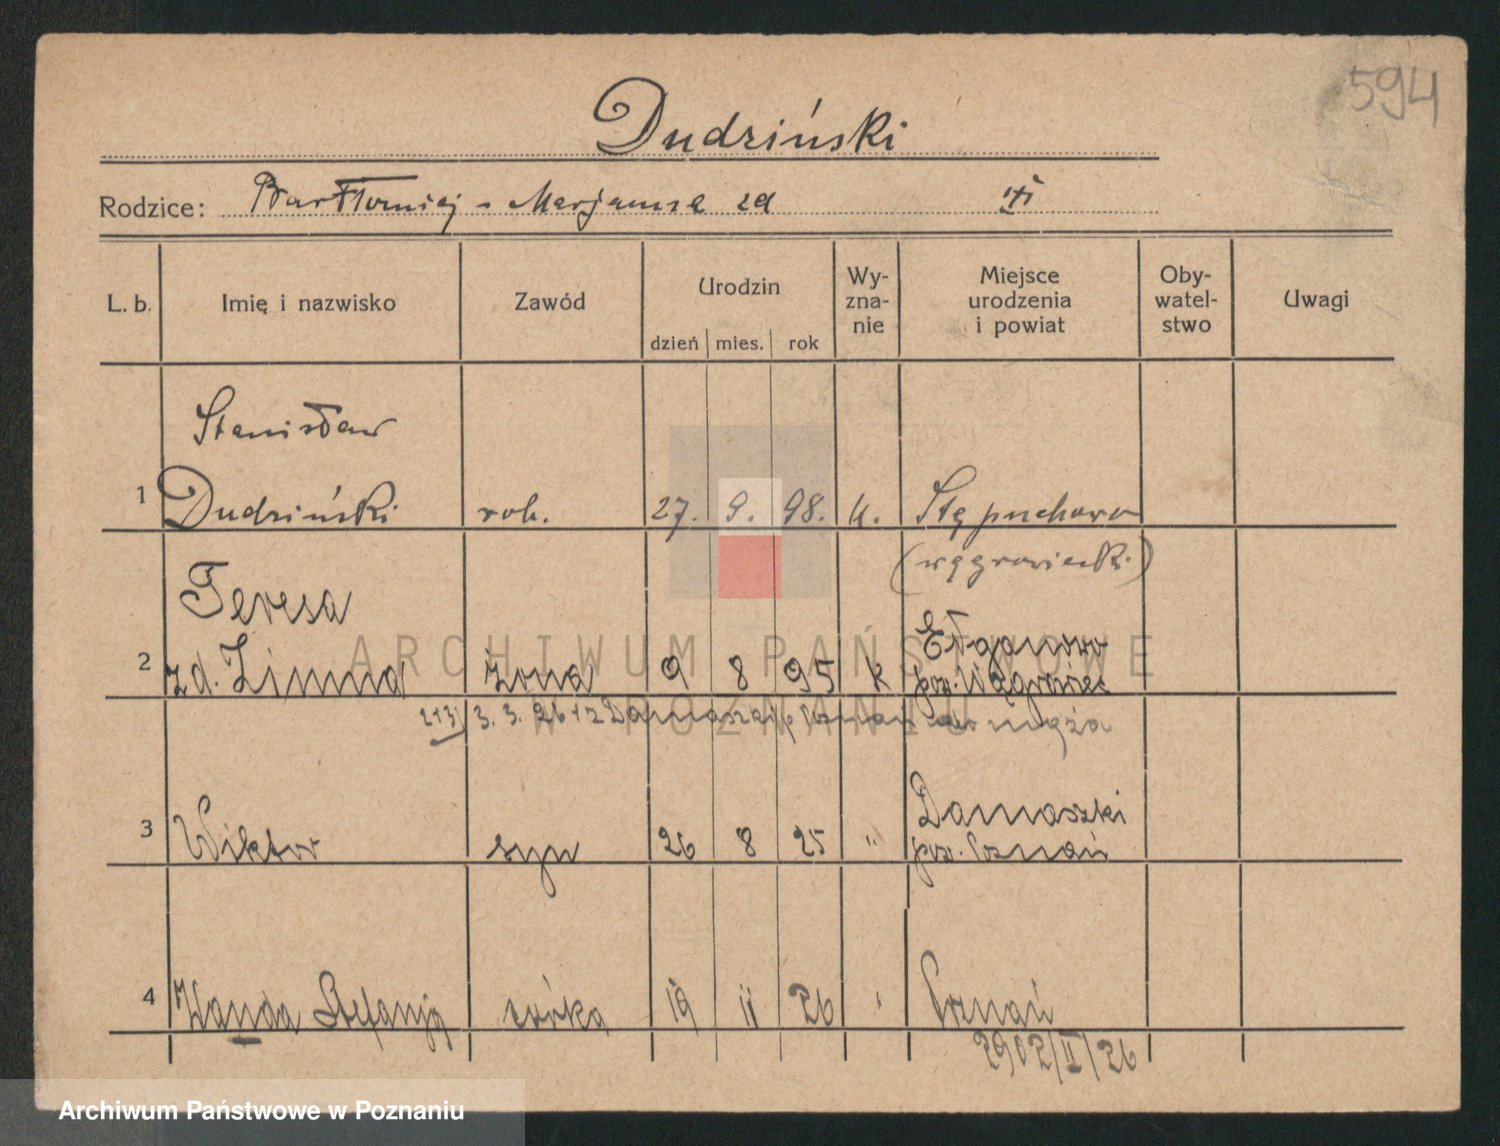 594
Dudziński
Rodzice: Bartłomiej - Marjanna zd
L. b. Imię i nazwisko Zawód Urodzin dzień mies. rok Wy-zna-nie Miejsce urodzenia i powiat Oby-watel-stwo Uwagi
Stanisław
1 Dudziński rob. 27. 9. 98. k. Stępuchowo
(wągrowiecki)
Teresa
2 zd. Zimna żona 9 8 95 k Ełganowo pow. Wągrowiec
2+3) 3. 3. 26 z Damaszki p Poznań do męża
3 Wiktor syn 26 8 25 " Damaszki pow. Poznań
4 Wanda Stefanja córka 19 11 26 " Poznań
2902/II/26
ARCHIWUM PAŃSTWOWE
W POZNANIU
Archiwum Państwowe w Poznaniu